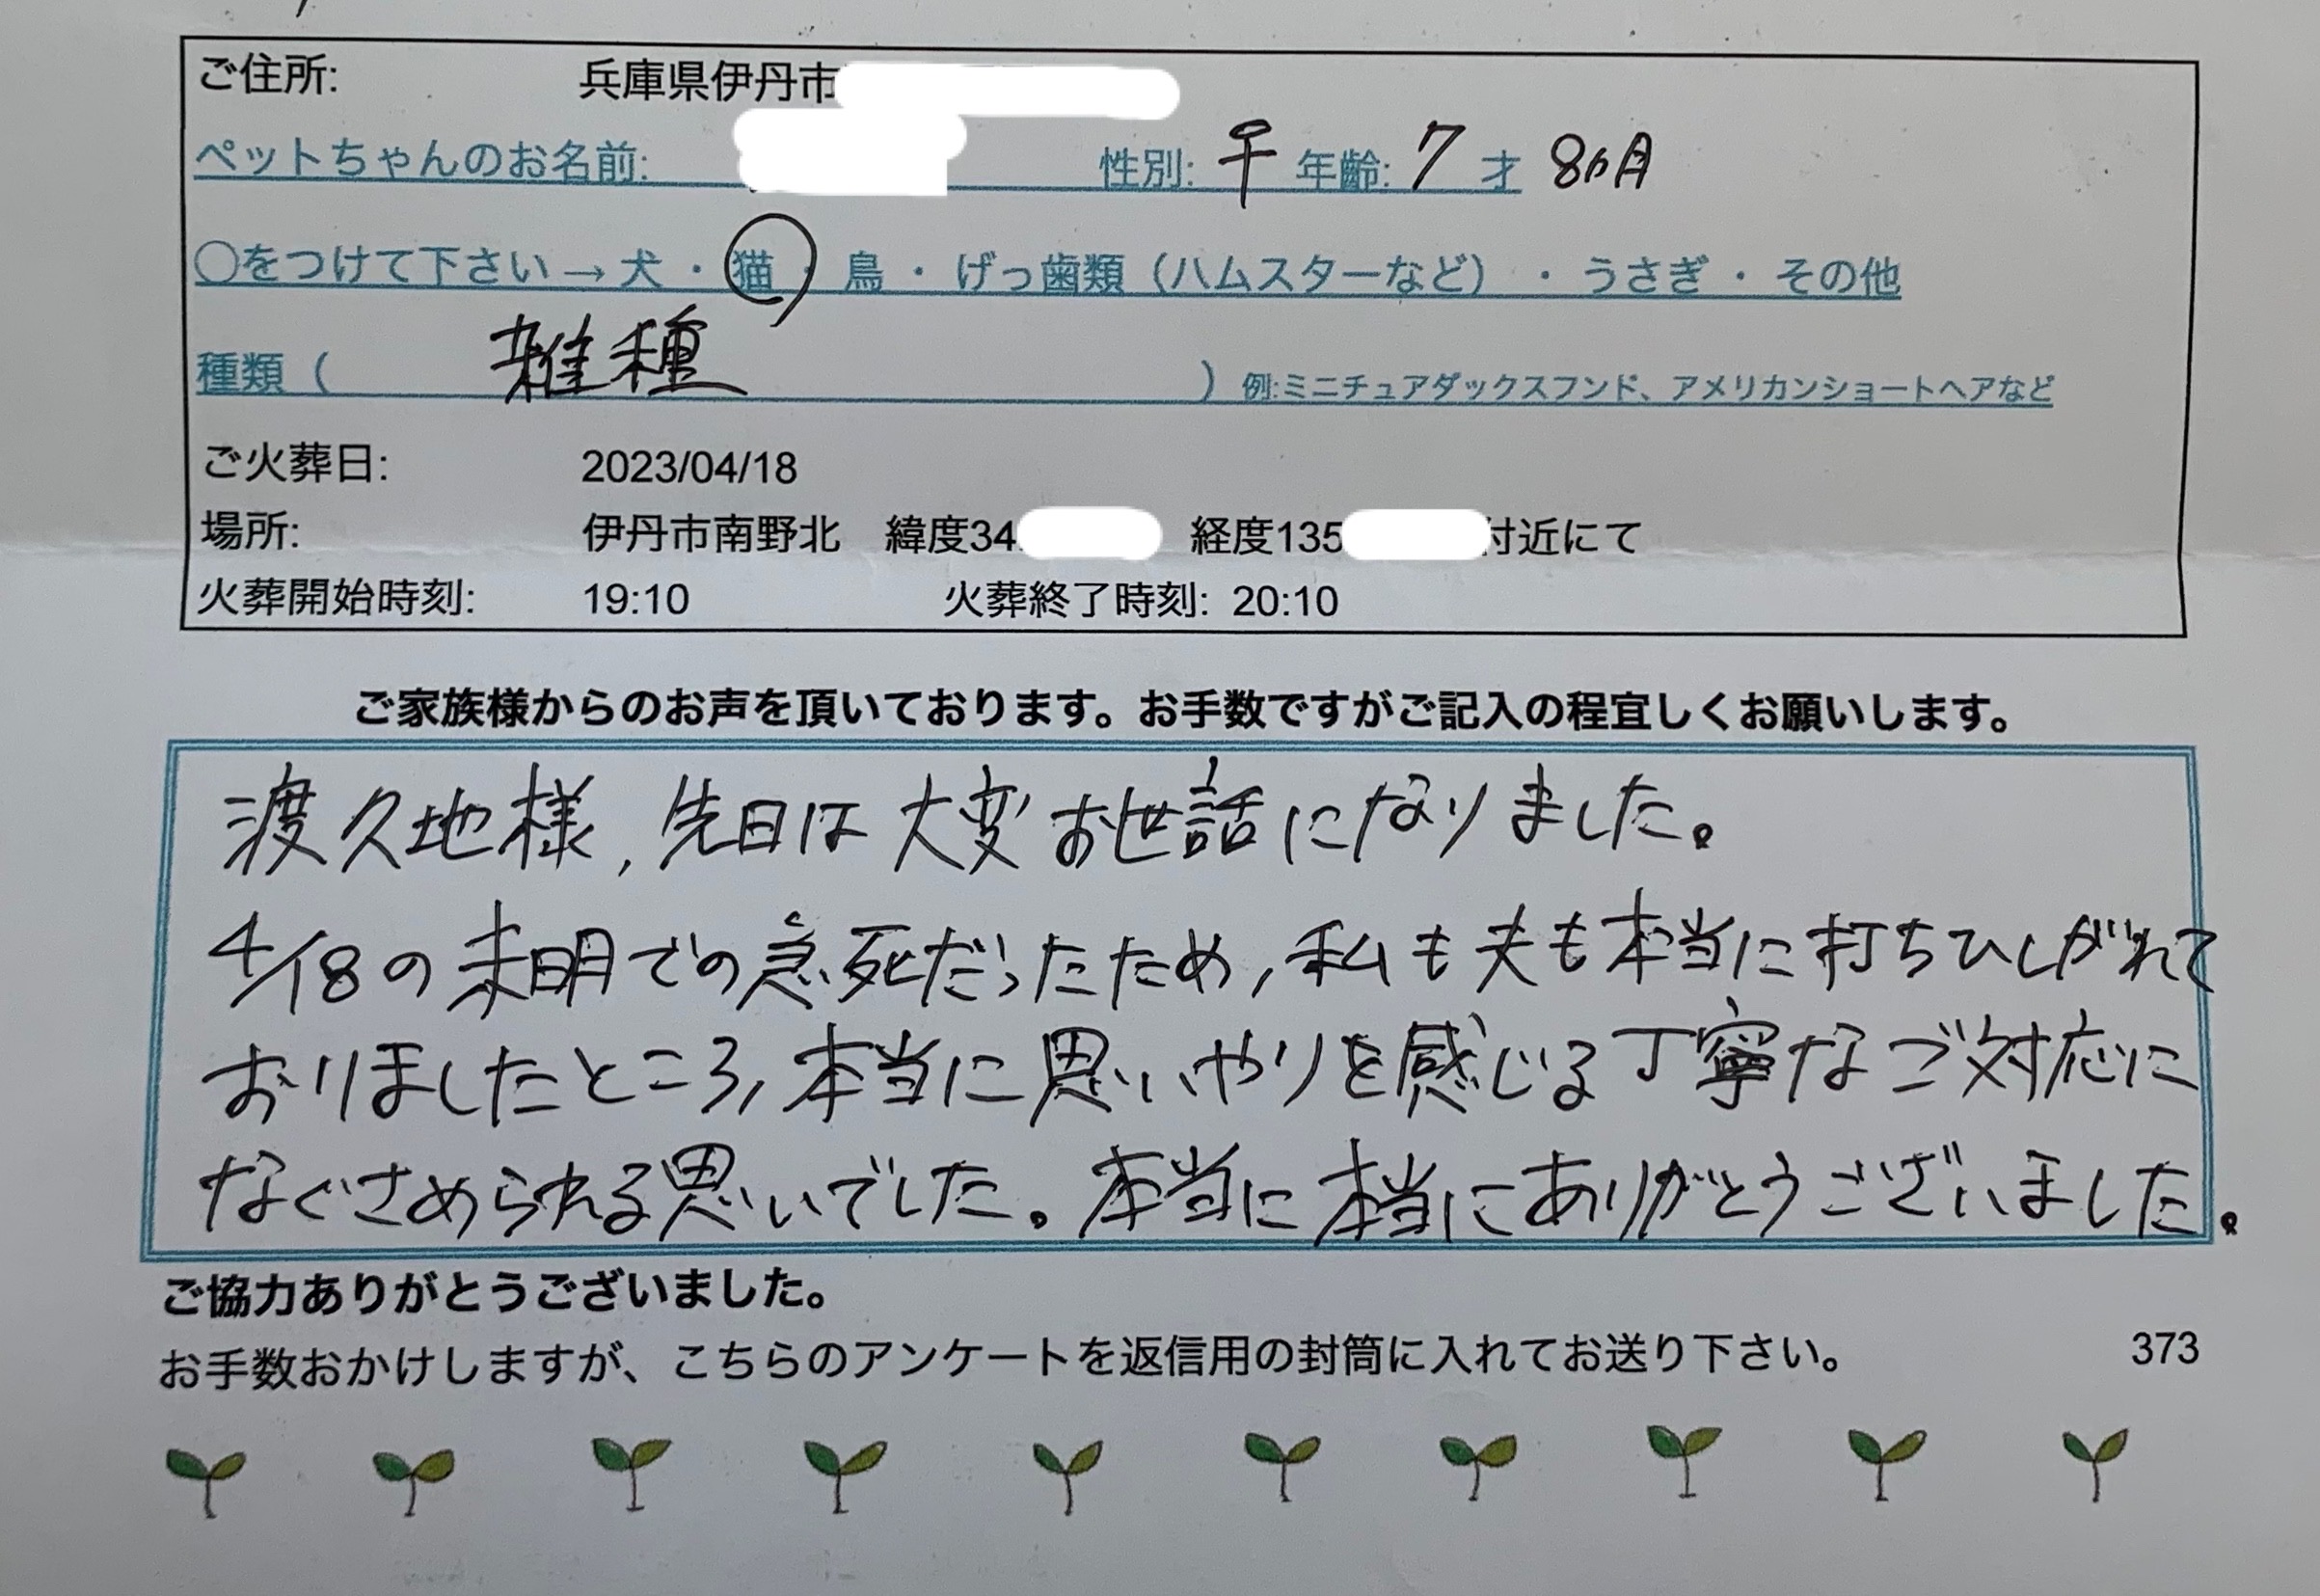 ご住所: 兵庫県伊丹市
ペットちゃんのお名前: 性別: 干 年齢: 7 才 8ヵ月
○をつけて下さい→犬・猫・鳥・げっ歯類（ハムスターなど）・うさぎ・その他
種類（ 雑種 ）例:ミニチュアダックスフンド、アメリカンショートヘアなど
ご火葬日: 2023/04/18
場所: 伊丹市南野北 緯度34. 経度135 付近にて
火葬開始時刻: 19:10 火葬終了時刻: 20:10
ご家族様からのお声を頂いております。お手数ですがご記入の程宜しくお願いします。
渡久地様,先日は大変お世話になりました。
4/18の未明での急死だったため,私も夫も本当に打ちひしがれて
おりましたところ,本当に思いやりを感じる丁寧なご対応に
なぐさめられる思いでした。本当に本当にありがとうございました。
ご協力ありがとうございました。
お手数おかけしますが、こちらのアンケートを返信用の封筒に入れてお送り下さい。 373